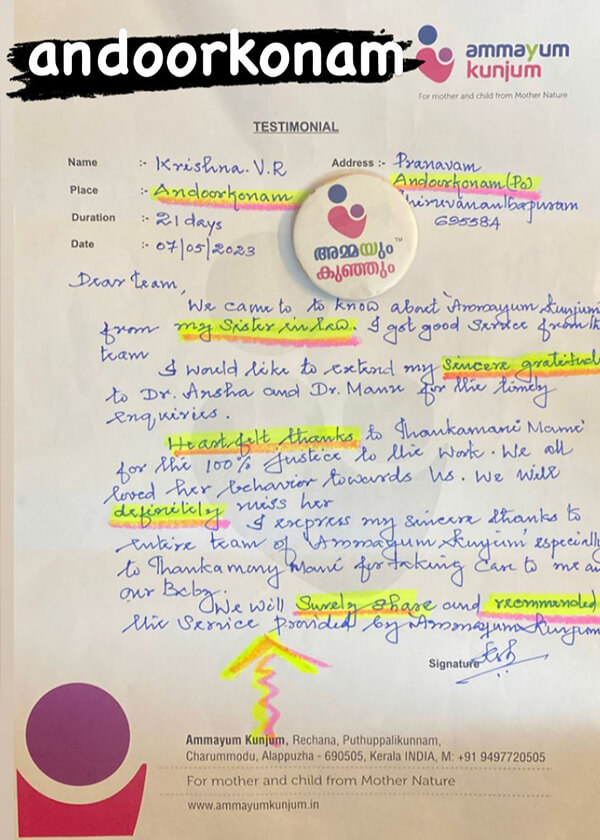 andoorkonam
ammayum
kunjum
For mother and child from Mother Nature
TESTIMONIAL
Name :- Krishna.V.R
Address :- Pranavam
Place :- Andoorkonam
Andoorkonam (Po)
Thiruvananthapuram
Duration :- 21 days
695584
Date :- 07/05/2023
അമ്മയും TM
കുഞ്ഞും
Dear team,
We came to to know about 'Ammayum Kunjum
from my Sister in law. I got good Service from th
team
I would like to extend my Sincere gratitud
to Dr. Ansha and Dr. Manu for the timely
enquiries.
Heart felt thanks to Thankamani Mami
for the 100% Justice to the work. We all
loved her behavior towards Us. We will
definitely miss her
I express my sincere thanks to
entire team of 'Ammayum Kunjum' especially
to Thankamony Mami for taking care to me an
our Baby.
We will Surely share and recommended
the Service provided by Ammayum Kunjum
Signature
Ammayum Kunjum, Rechana, Puthuppalikunnam,
Charummodu, Alappuzha - 690505, Kerala INDIA, M: +91 9497720505
For mother and child from Mother Nature
www.ammayumkunjum.in